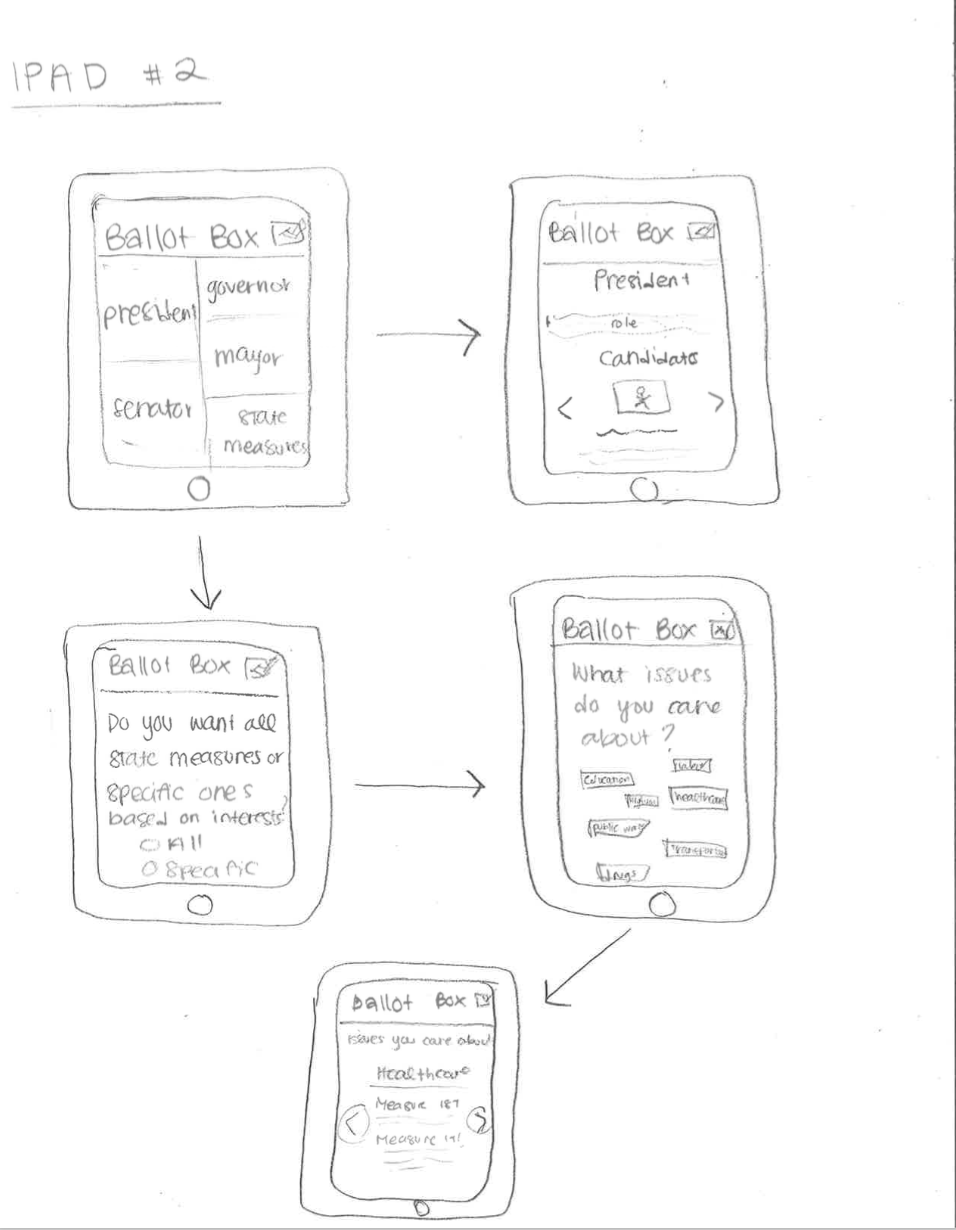 IPAD #2
Ballot Box
president
governor
mayor
senator
state
measures
Ballot Box
President
role
Candidates
Ballot Box
Do you want all
state measures or
specific ones
based on interests?
All
Specific
Ballot Box
What issues
do you care
about?
education
labor
healthcare
public works
transportat
drugs
Ballot Box
issues you care about
Healthcare
Measure 187
Measure